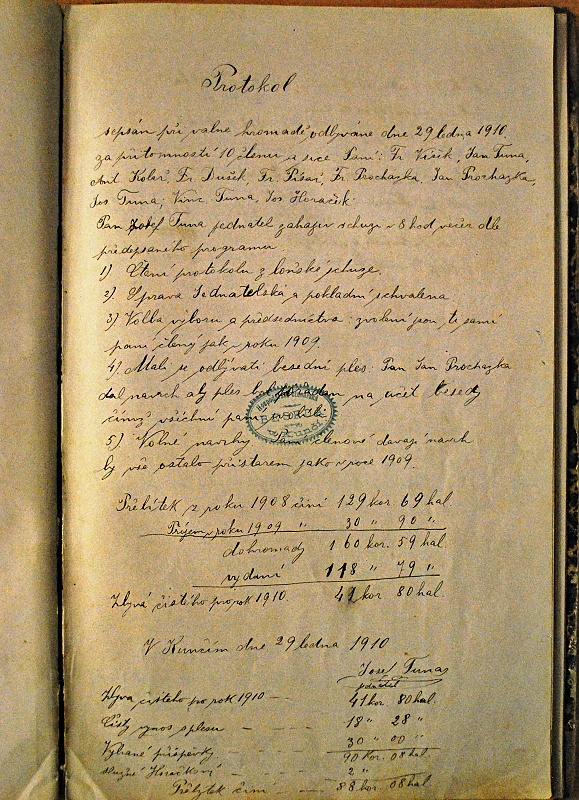 Protokol
sepsán při valné hromadě, odbývané dne 29 ledna 1910
za přítomnosti 10 členu a sice Páni: Fr Vísek, Jan Tuna,
Ant Koler, Fr. Dušek, Fr. Písař, Fr Prochazka, Jan Prochazka,
Jos Tuna, Vinc. Tuna, Jos Horáček.
Pan Josef Tuna jednatel zahajuv schuzi v 8 hod večer dle
předepsaného programu
1) Čtení protokolu z loňské schuze.
2) Zprava Jednatelská a pokladní schvalena
3) Volba výboru a předsednictva: zvoleni jsou ti samí
paní členy jak v roku 1909.
4) Má-li se odbývati besední ples: Pan Jan Prochazka
dal navrh aby ples byl na učet besedy
čímž všichni pani svolili
5) Volné navrhy členové davají navrh
by vše ostalo při starem jako v roce 1909.
Přebitek z roku 1908 činí 129 kor 69 hal.
Příjem v roku 1909 " 30 " 90 "
dohromady 160 kor. 59 hal
vydání 118 " 79 "
Zbývá čistého pro rok 1910. 41 kor 80 hal.
V Kunčím dne 29 ledna 1910
Josef Tuna
jednatel
Zbyva čisteho po rok 1910 — 41 kor 80 hal.
Čistý vynos s plesu - - - 18 " 28 "
Vybrané příspěvky - - 30 " 00 "
90 kor. 08 hal.
služné Horáčkovi - - 2 "
Přebytek činí - 88 kor 08 hal